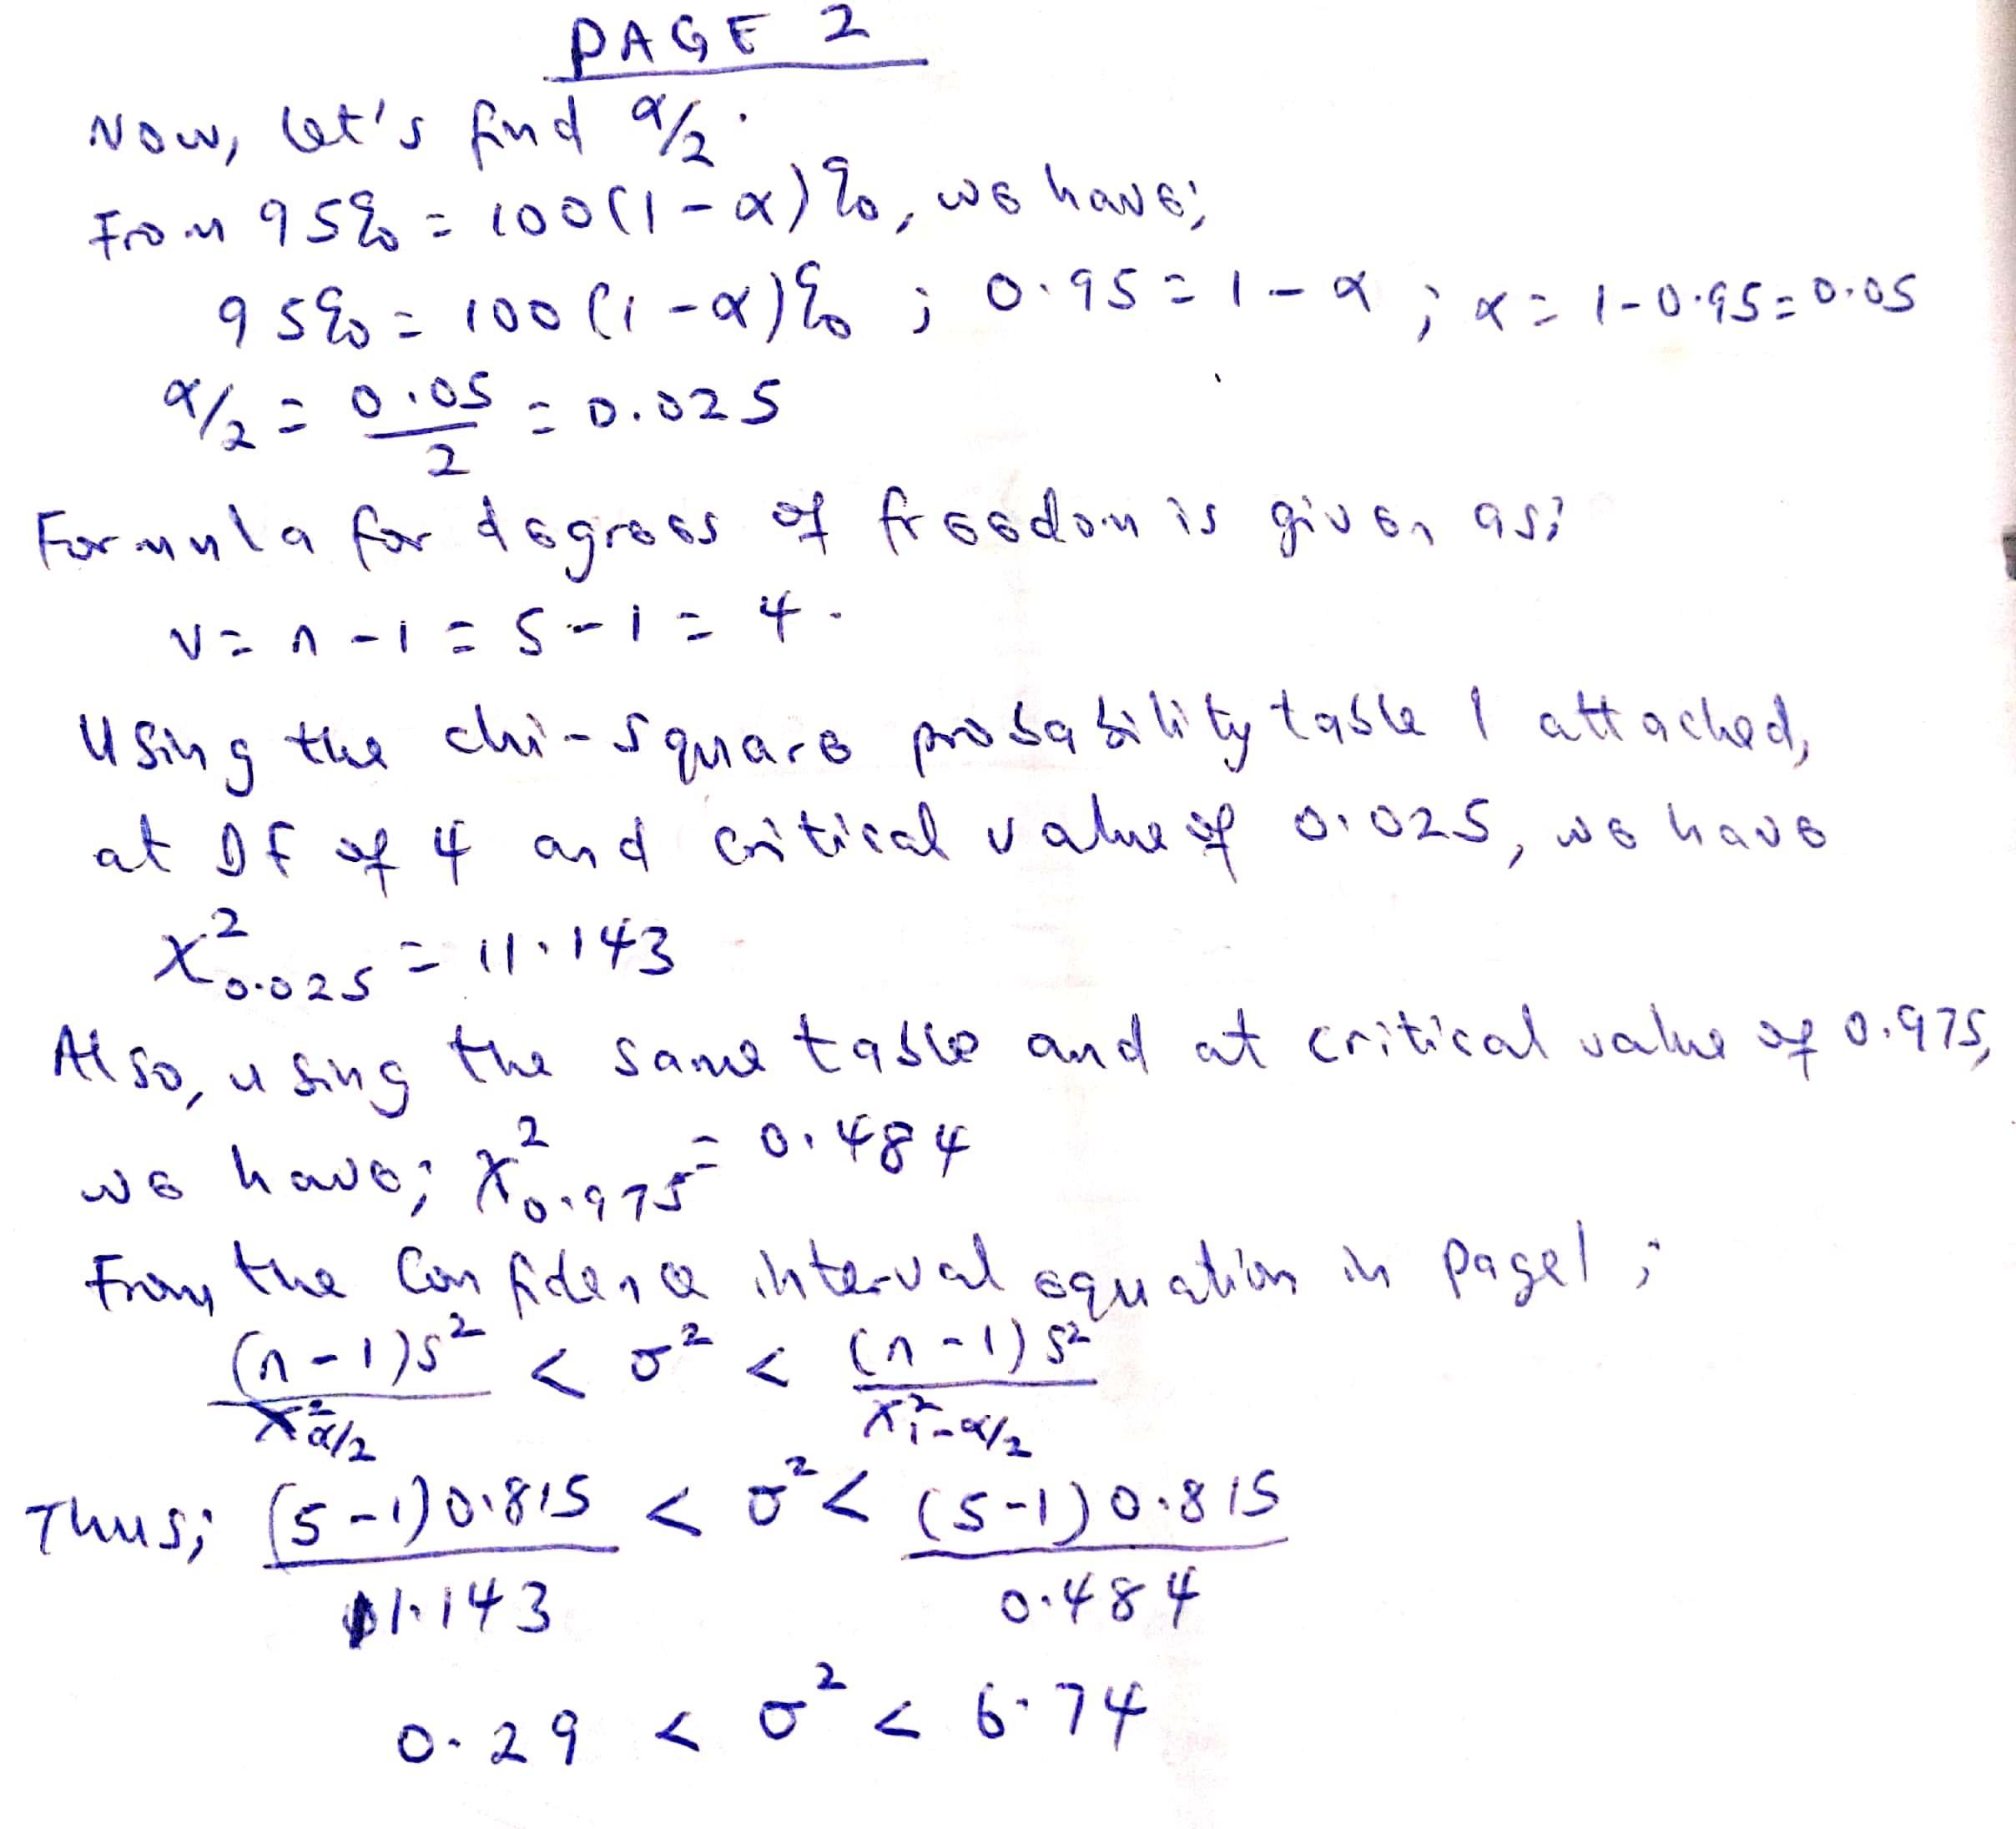 PAGE 2
Now, let's find α/2.
From 95% = 100(1-α)%, we have;
95% = 100(1-α)% ; 0.95 = 1-α ; α = 1-0.95 = 0.05
α/2 = 0.05/2 = 0.025
Formula for degrees of freedom is given as;
v = n-1 = 5-1 = 4.
Using the chi-square probability table 1 attached,
at DF of 4 and critical value of 0.025, we have
X²0.025 = 11.143
Also, using the same table and at critical value of 0.975,
we have; X²0.975 = 0.484
From the Confidence interval equation in page 1;
(n-1)s²/X²α/2 < σ² < (n-1)s²/X²1-α/2
Thus; (5-1)0.815/11.143 < σ² < (5-1)0.815/0.484
0.29 < σ² < 6.74